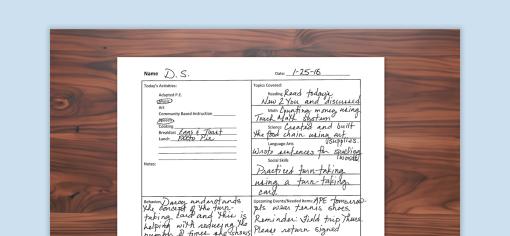 Name D. S. Date: 1-25-16
Today's Activities:
Adapted P.E.
Music
Art
Community Based Instruction
Cooking
Breakfast Eggs & Toast
Lunch Potato Pie
Notes:
Topics Covered:
Reading Read today's
New 2 You and discussed
Math Counting money using
Touch Math system
Science Created and built
the food chain using art
supplies.
Language Arts
Wrote sentences for spelling
words
Social Skills
Practiced turn-taking
using a turn-taking
card.
Behavior: Darcy understands
the concept of the turn-
taking card and this is
helping with reducing the
number of times she
Upcoming Events/Needed Items: APE tomorrow
pls wear tennis shoes.
Reminder: Field trip Thurs.
Please return signed